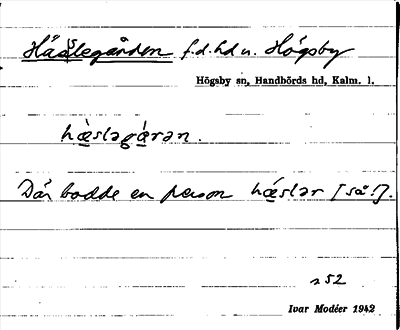 Häslegården f.d. hd u. Högsby
Högsby sn, Handbörds hd, Kalm. l.
hæ̀sləgá̀rən.
Där bodde en person hæ̀slər [så!].
s 52
Ivar Modéer 1942